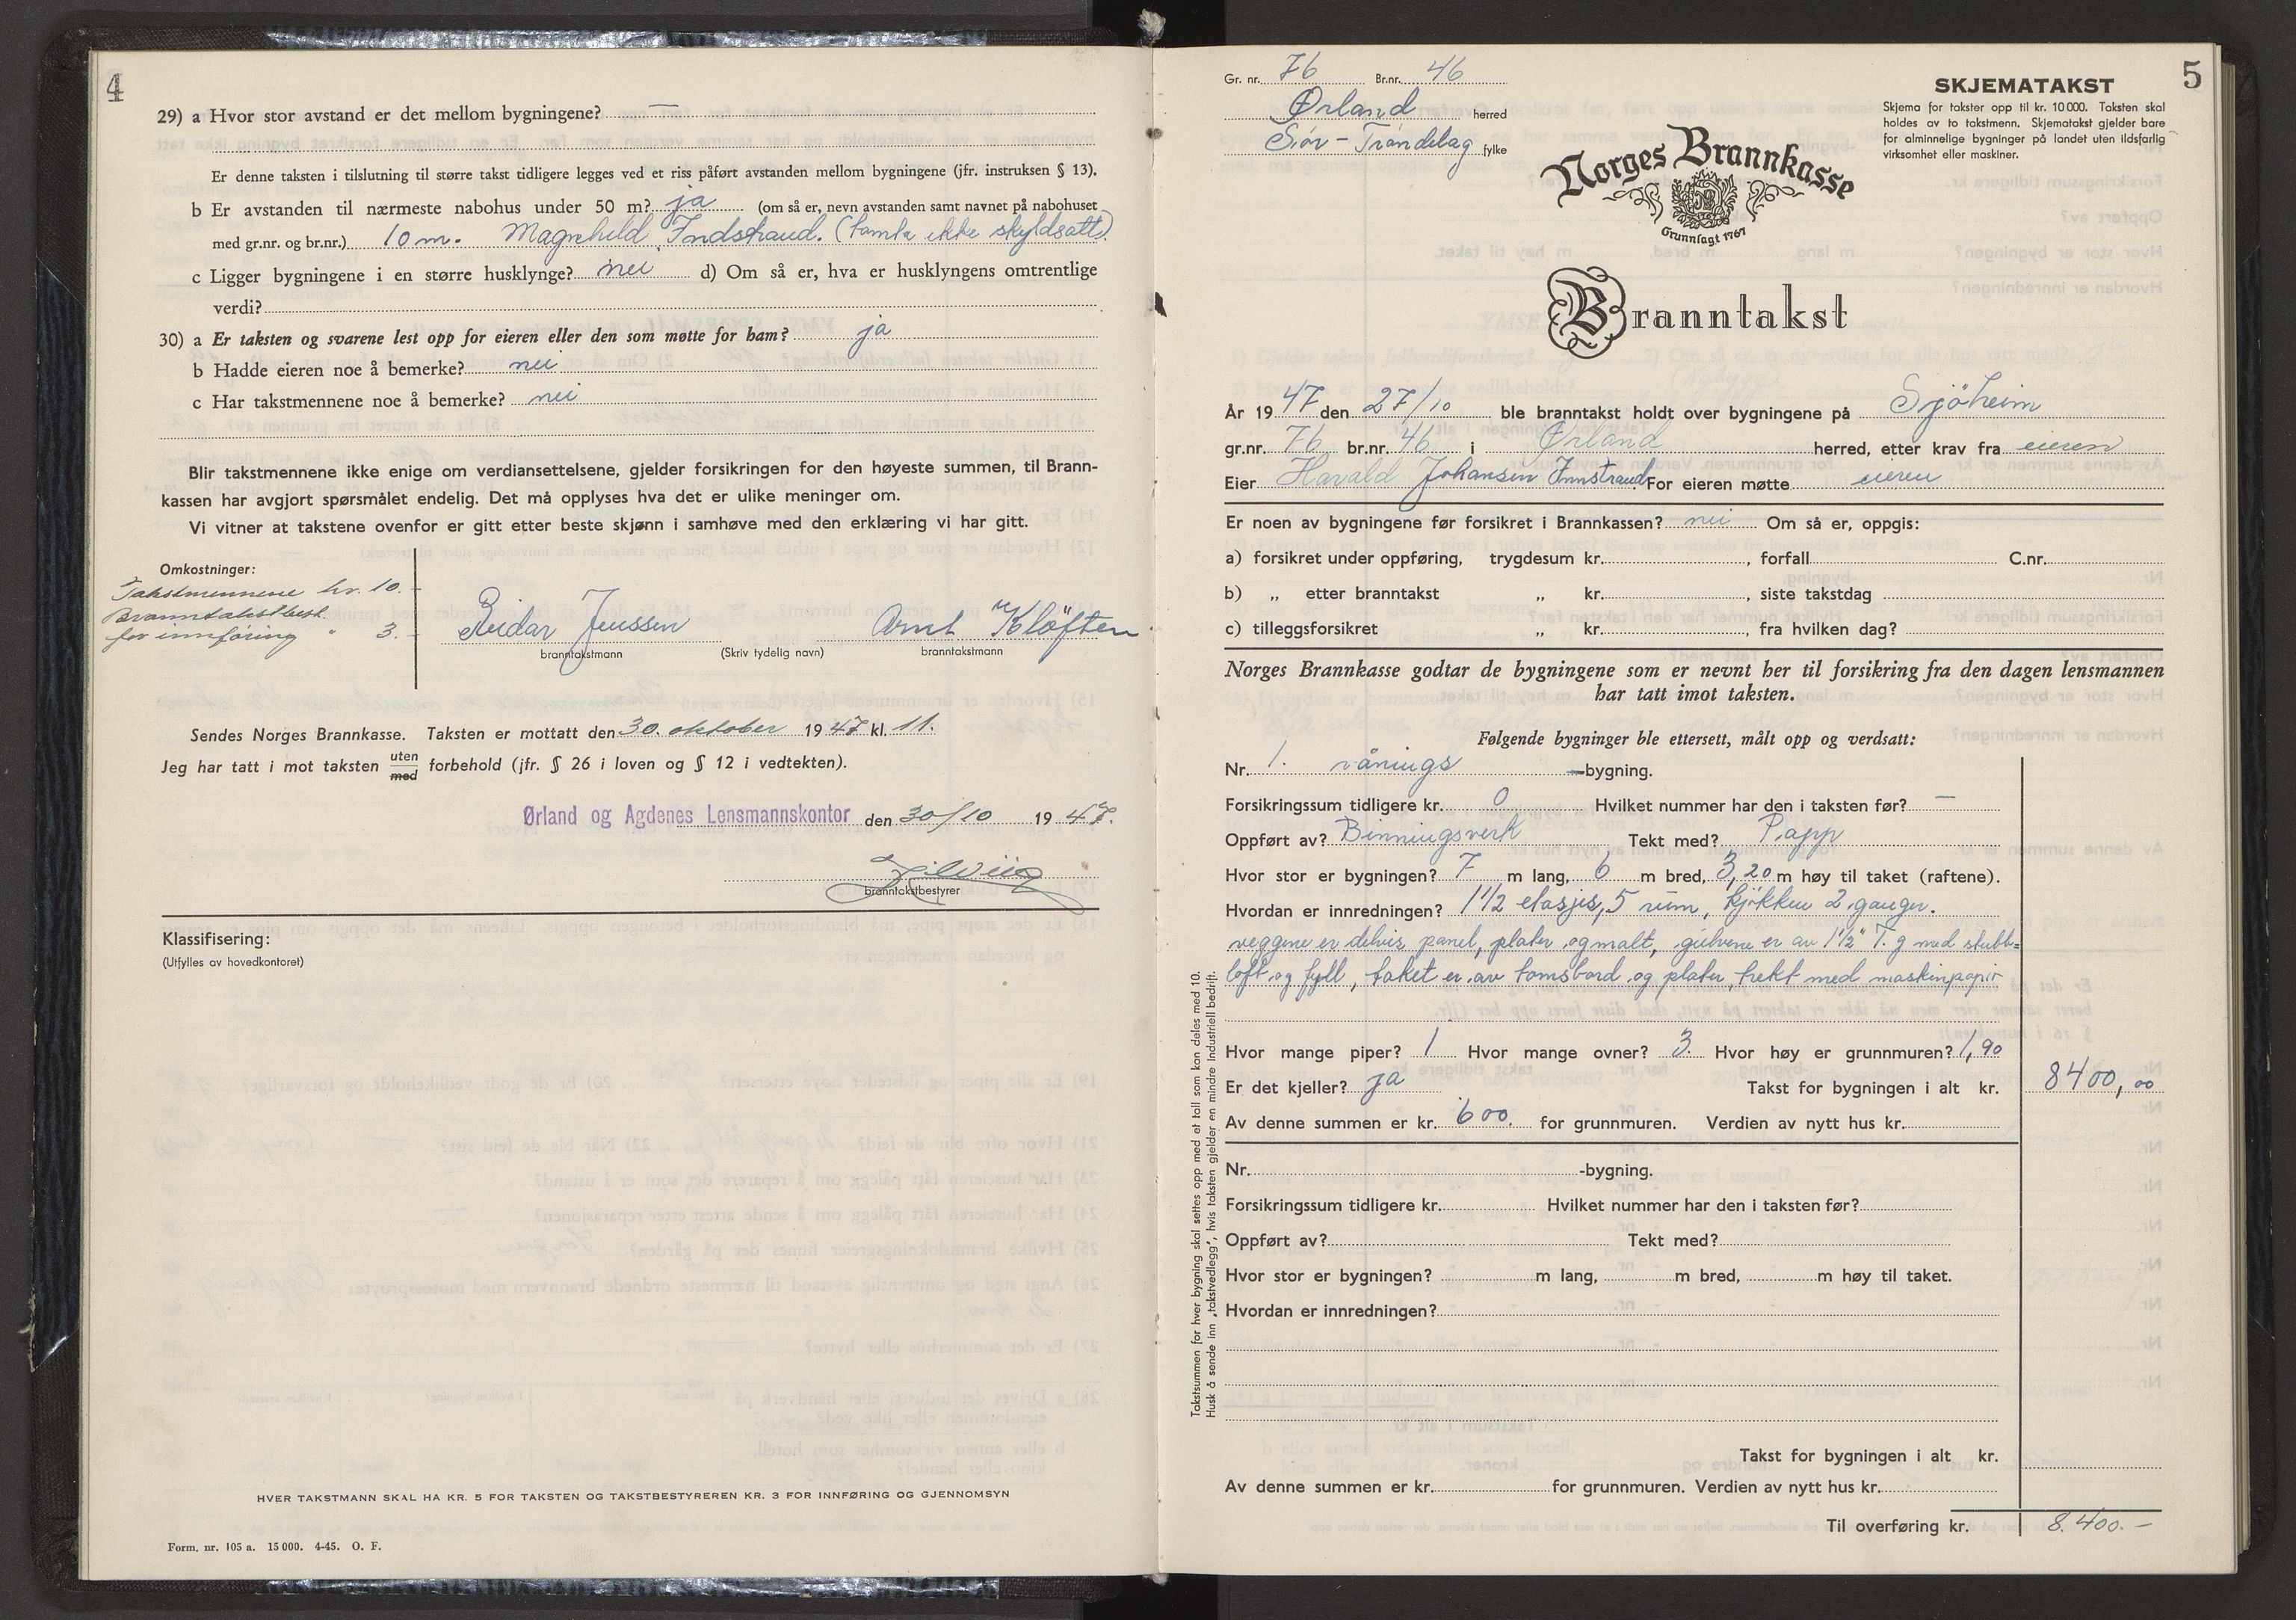 4
29) a Hvor stor avstand er det mellom bygningene? —
Er denne taksten i tilslutning til større takst tidligere legges ved et riss påført avstanden mellom bygningene (jfr. instruksen § 13).
b Er avstanden til nærmeste nabohus under 50 m? ja (om så er, nevn avstanden samt navnet på nabohuset
med gr.nr. og br.nr.) 10 m. Magnhild Indstrand. (tomta ikke skyldsatt)
c Ligger bygningene i en større husklynge? nei d) Om så er, hva er husklyngens omtrentlige
verdi?
30) a Er taksten og svarene lest opp for eieren eller den som møtte for ham? ja
b Hadde eieren noe å bemerke? nei
c Har takstmennene noe å bemerke? nei
Blir takstmennene ikke enige om verdiansettelsene, gjelder forsikringen for den høyeste summen, til Brann-
kassen har avgjort spørsmålet endelig. Det må opplyses hva det er ulike meninger om.
Vi vitner at takstene ovenfor er gitt etter beste skjønn i samhøve med den erklæring vi har gitt.
Omkostninger:
Takstmennene kr. 10.-
Branntakstbest.
for innføring " 3.-
Reidar Jenssen Arnt Kløften
branntakstmann (Skriv tydelig navn) branntakstmann
Sendes Norges Brannkasse. Taksten er mottatt den 30. oktober 1947 kl. 11.
Jeg har tatt i mot taksten uten med forbehold (jfr. § 26 i loven og § 12 i vedtekten).
Ørland og Agdenes Lensmannskontor den 30/10 1947.
branntakstbestyrer
Klassifisering:
(Utfylles av hovedkontoret)
HVER TAKSTMANN SKAL HA KR. 5 FOR TAKSTEN OG TAKSTBESTYREREN KR. 3 FOR INNFØRING OG GJENNOMSYN
Form. nr. 105 a. 15 000. 4-45. O. F.
5
Gr. nr. 76 Br.nr. 46
Ørland herred
Sör-Tröndelag fylke
SKJEMATAKST
Skjema for takster opp til kr. 10 000. Taksten skal
holdes av to takstmenn. Skjematakst gjelder bare
for alminnelige bygninger på landet uten ildsfarlig
virksomhet eller maskiner.
Norges Brannkasse
Grunnlagt 1767
Branntakst
År 1947 den 27/10 ble branntakst holdt over bygningene på Sjöheim
gr.nr. 76 br.nr. 46 i Ørland herred, etter krav fra eieren
Eier Harald Johansen Innstrand For eieren møtte eieren
Er noen av bygningene før forsikret i Brannkassen? nei Om så er, oppgis:
a) forsikret under oppføring, trygdesum kr. , forfall C.nr.
b) „ etter branntakst „ kr. , siste takstdag
c) tilleggsforsikret „ kr. , fra hvilken dag?
Norges Brannkasse godtar de bygningene som er nevnt her til forsikring fra den dagen lensmannen
har tatt imot taksten.
Følgende bygninger ble ettersett, målt opp og verdsatt:
Nr. 1. vånings -bygning.
Forsikringssum tidligere kr. 0 Hvilket nummer har den i taksten før? —
Oppført av? Binningsverk Tekt med? Papp
Hvor stor er bygningen? 7 m lang, 6 m bred, 3,20 m høy til taket (raftene).
Hvordan er innredningen? 1 1/2 etasjes, 5 rum, kjökken 2 ganger.
veggene er delvis panel, plater og malt, gulvene er av 1 1/2" T. g med stubb=
loft og fyll, taket er av tomsbord og plater, trekt med maskinpapir
Hvor mange piper? 1 Hvor mange ovner? 3. Hvor høy er grunnmuren? 1,90
Er det kjeller? ja Takst for bygningen i alt kr. 8400,00
Av denne summen er kr. 600. for grunnmuren. Verdien av nytt hus kr.
Nr. -bygning.
Forsikringssum tidligere kr. Hvilket nummer har den i taksten før?
Oppført av? Tekt med?
Hvor stor er bygningen? m lang, m bred, m høy til taket.
Hvordan er innredningen?
Takst for bygningen i alt kr.
Av denne summen er kr. for grunnmuren. Verdien av nytt hus kr.
Til overføring kr. 8.400.-
Takstsummen for hver bygning skal settes opp med et tall som kan deles med 10.
Husk å sende inn „takstvedlegg", hvis taksten gjelder en mindre industriell bedrift.